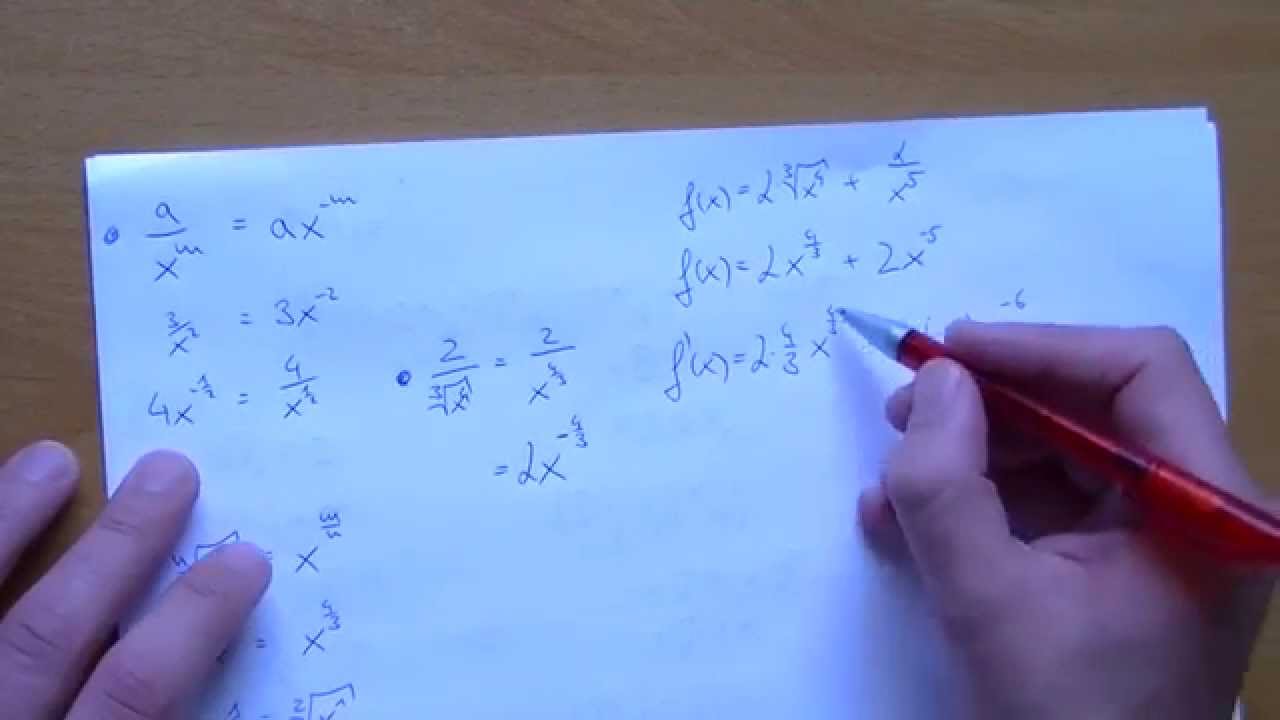 a/x^m = ax^-m
3/x^2 = 3x^-2
4x^-1/2 = 4/x^1/2
2/∛x^4 = 2/x^4/3
= 2x^-4/3
= x^m/n
= x^4/3
f(x) = 2∛x^4 + 2/x^5
f(x) = 2x^4/3 + 2x^-5
f'(x) = 2·4/3 x -6